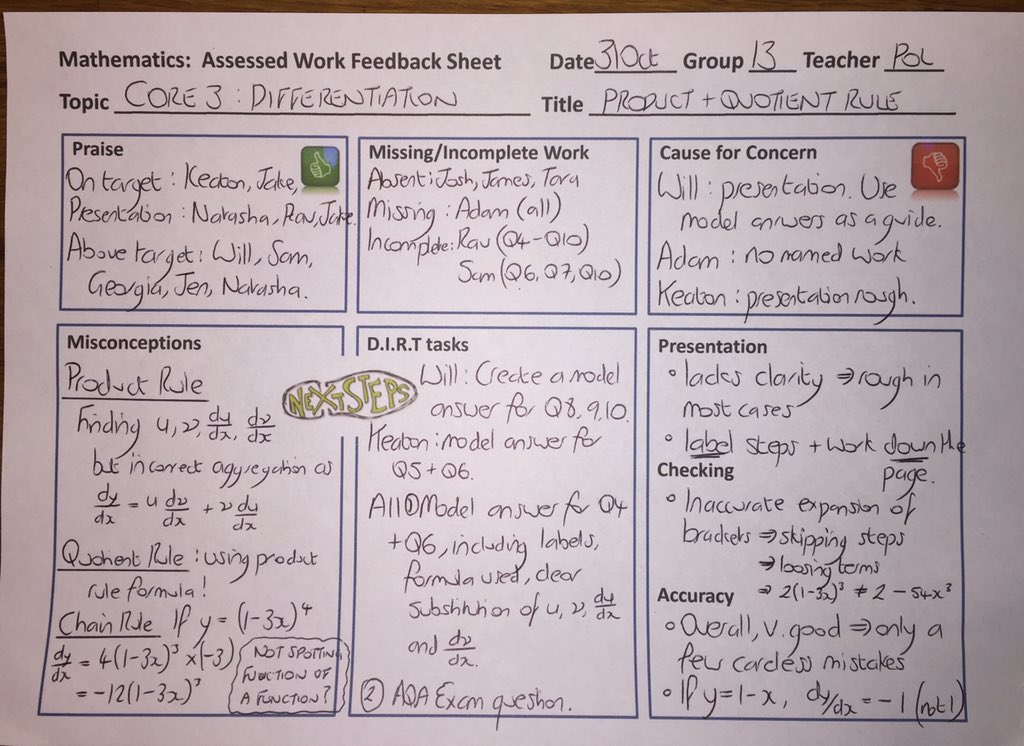 Mathematics: Assessed Work Feedback Sheet
Date 31 Oct Group 13 Teacher POL
Topic CORE 3 : DIFFERENTIATION
Title PRODUCT + QUOTIENT RULE
Praise
On target : Keaton, Jake,
Presentation : Natasha, Rav, Jake.
Above target : Will, Sam,
Georgia, Jen, Natasha.
Missing/Incomplete Work
Absent : Josh, James, Tara
Missing : Adam (all)
Incomplete : Rav (Q4-Q10)
Sam (Q6, Q7, Q10)
Cause for Concern
Will : presentation. Use
model answers as a guide.
Adam : no named work
Keaton : presentation rough.
Misconceptions
Product Rule
Finding u, v, du/dx, dv/dx
but incorrect aggregation as
dy/dx = u dv/dx + v du/dx
Quotient Rule : using product
rule formula!
Chain Rule If y = (1-3x)^4
dy/dx = 4(1-3x)³ × (-3)
= -12(1-3x)³
NOT SPOTTING
FUNCTION OF
A FUNCTION?
NEXT STEPS
D.I.R.T tasks
Will : Create a model
answer for Q8, 9, 10.
Keaton : model answer for
Q5 + Q6.
All ① Model answer for Q4
+ Q6, including labels,
formula used, clear
substitution of u, v, du/dx
and dv/dx.
② AQA Exam question.
Presentation
• lacks clarity ⇒ rough in
most cases
• label steps + work down the
page.
Checking
• Inaccurate expansion of
brackets ⇒ skipping steps
⇒ loosing terms
⇒ 2(1-3x)³ ≠ 2 - 54x³
Accuracy
• Overall, v. good ⇒ only a
few careless mistakes
• If y = 1-x, dy/dx = -1 (not 1)